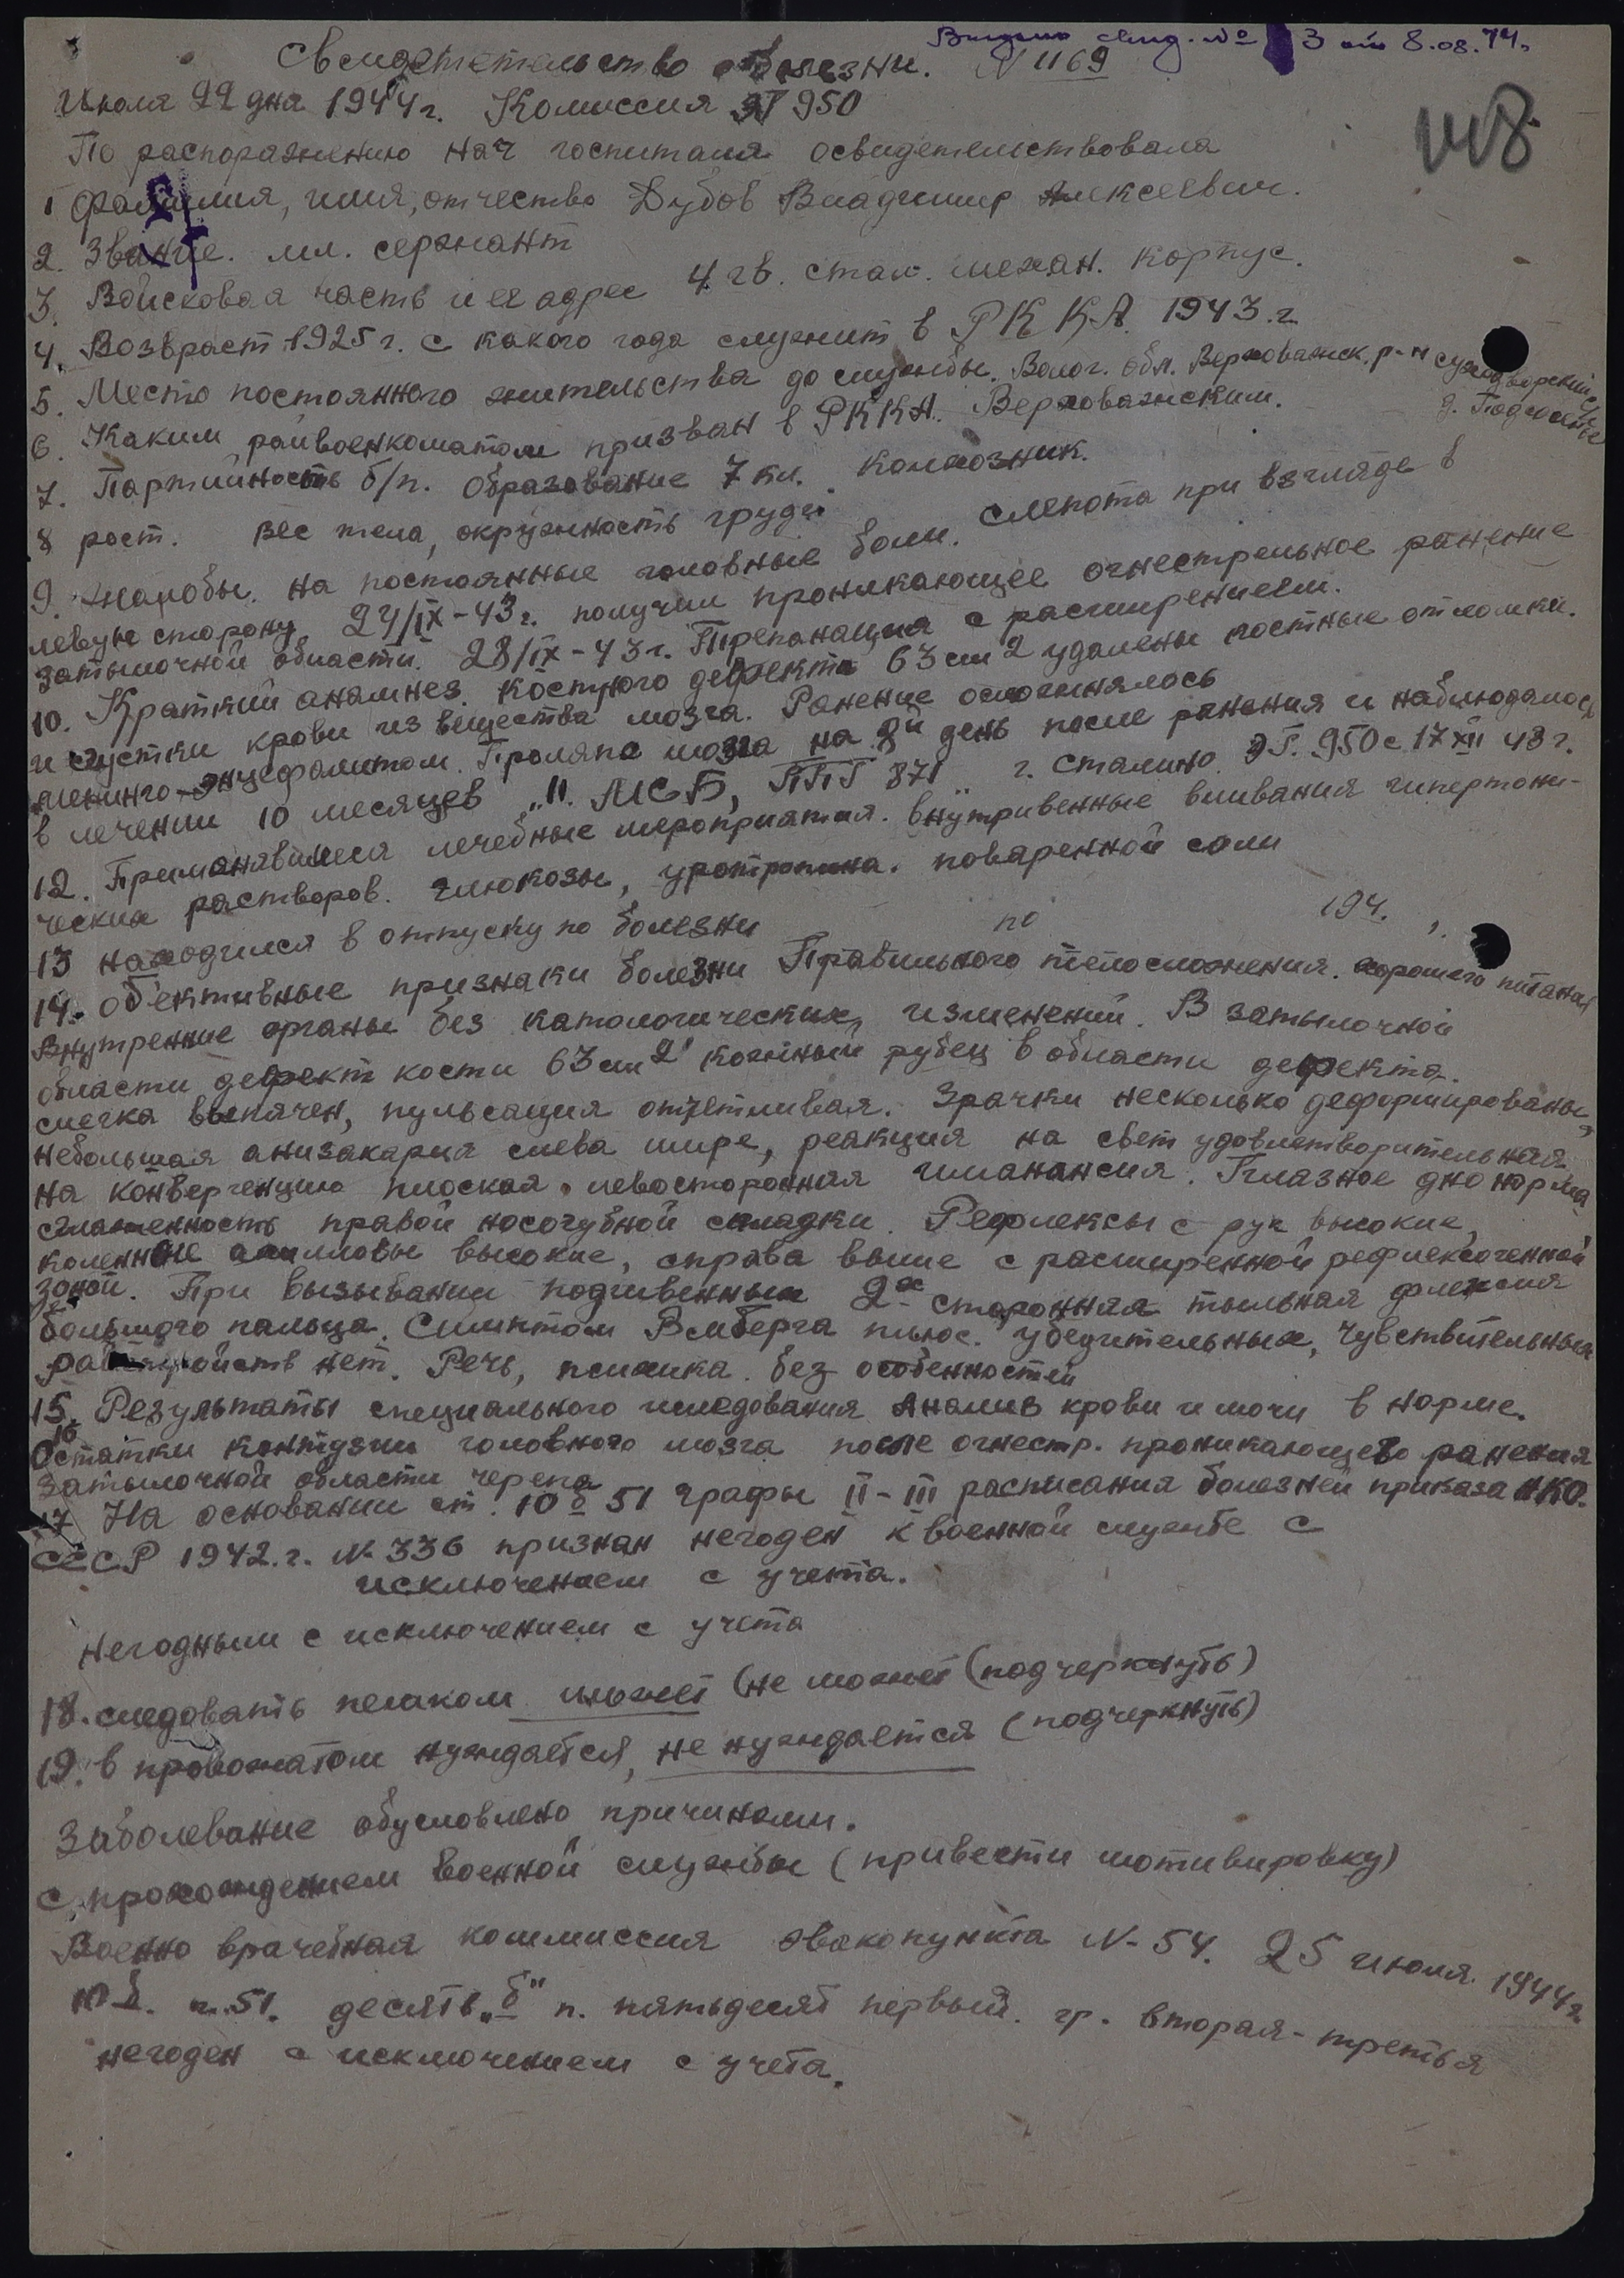 Выдано свид. № 3 от 8.08.74.
Свидетельство о болезни. N 1169
118
Июля 22 дня 1944 г. Комиссия ЭГ 950
По распоряжению нач госпиталя освидетельствовала
1 Фамилия, имя, отчество Дубов Владимир Алексеевич.
2. Звание. мл. сержант
3. Войсковая часть и ее адрес 4 гв. стал. механ. корпус.
4. Возвраст 1925 г. с какого года служит в РККА. 1943.г.
5. Место постоянного жительства до службы. Волог. обл. Верховажск. р-н
6. Каким райвоенкоматом призван в РККА. Верховажским.
7. Партийность б/п. Образование 7 кл. колхозник.
8 рост. Вес тела, окружность груди
9. Жалобы. на постоянные головные боли. Слепота при взгляде в
левую сторону. 24/IX-43 г. получил проникающее огнестрельное ранение
затылочной области. 28/IX-43 г. Трепанация с расширением.
10. Краткий анамнез. костного дефекта 63 см2 удалены костные отломки.
и сгустки крови из вещества мозга. Ранение осложнялось
менинго-энцефалитом. Проляпс мозга на 8й день после ранения и наблюдалось
в лечении 10 месяцев "11. МСБ, ППГ 871" г. Сталино. ЭГ. 950 с 17 XII 43 г.
12. Применявшиеся лечебные мероприятия. внутривенные вливания гипертони-
ческих растворов. глюкозы, уротропина. поваренной соли
13 находился в отпуску по болезни по 194.
14. Обективные признаки болезни Правильного телосложения. хорошего питания
Внутренние органы без патологических изменений. В затылочной
области дефект кости 63 см2 кожный рубец в области дефекта.
слегка выпячен, пульсация отчетливая. Зрачки несколько деформированы,
небольшая анизакария слева шире, реакция на свет удовлетворительная
на конвергенцию плоская. левосторонняя гимианапсия. Глазное дно норма
сглаженность правой носогубной складки. Рефлексы с рук высокие,
коленные ахилловы высокие, справа выше с расширенной рефлексогенной
зоной. При вызывании подчивенных 2х сторонняя тыльная флексия
большого пальца. Симптом Ромберга плюс. убедительных, чувствительных
расстройств нет. Речь, психика. без особенностей
15. Результаты специального иследования Анализ крови и мочи в норме.
16. Остатки контузии головного мозга после огнестр. проникающего ранения
затылочной области черепа
17 На основании ст. 10 б 51 графы II-III расписания болезней приказа НКО.
СССР 1942.г. N-336 признан негоден к военной службе с
исключением с учета.
негодным с исключением с учета
18. следовать пешком может (не может (подчеркнуть)
19. в провожатом нуждается, не нуждается (подчеркнуть)
Заболевание обусловлено причинами.
с прохождением военной службы (привести мотивировку)
Военно врачебная коммиссия эвакопункта N-54. 25 июля 1944 г.
10 б. п. 51. десять "б" п. пятьдесят первый. гр. вторая-третья
негоден с исключением с учета.